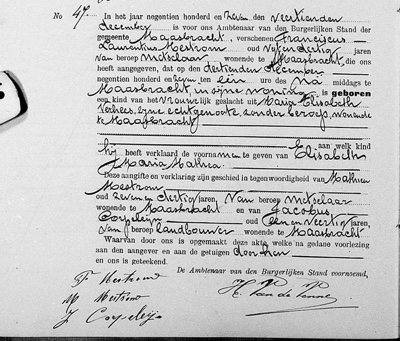 No 47. In het jaar negentien honderd en zeven, den veertienden
december is voor ons Ambtenaar van den Burgerlijken Stand der
gemeente Maasbracht, verschenen Franciscus
Laurentius Mestrom oud vijfendertig jaren
van beroep metselaar, wonende te Maasbracht, die ons
heeft aangegeven, dat op den dertienden december
negentien honderd en zeven ten een ure des na middags te
Maasbracht, in zijne woning is geboren
een kind van het vrouwelijk geslacht uit Maria Elisabeth
Verhees, zijne echtgenoote, zonder beroep, wonende
te Maasbracht
aan welk kind
hij heeft verklaard de voornamen te geven van Elisabeth
Maria Mathea.
Deze aangifte en verklaring zijn geschied in tegenwoordigheid van Mathieu
Mestrom
oud zeven en dertig jaren, van beroep metselaar
wonende te Maasbracht en van Jacobus
Corpeleijn oud een en veertig jaren,
van beroep landbouwer wonende te Maasbracht
Waarvan door ons is opgemaakt deze akte, welke na gedane voorlezing
aan den aangever en aan de getuigen door hen
en ons is geteekend.
De Ambtenaar van den Burgerlijken Stand voornoemd,
F. Mestrom
M Mestrom
J Corpeleijn